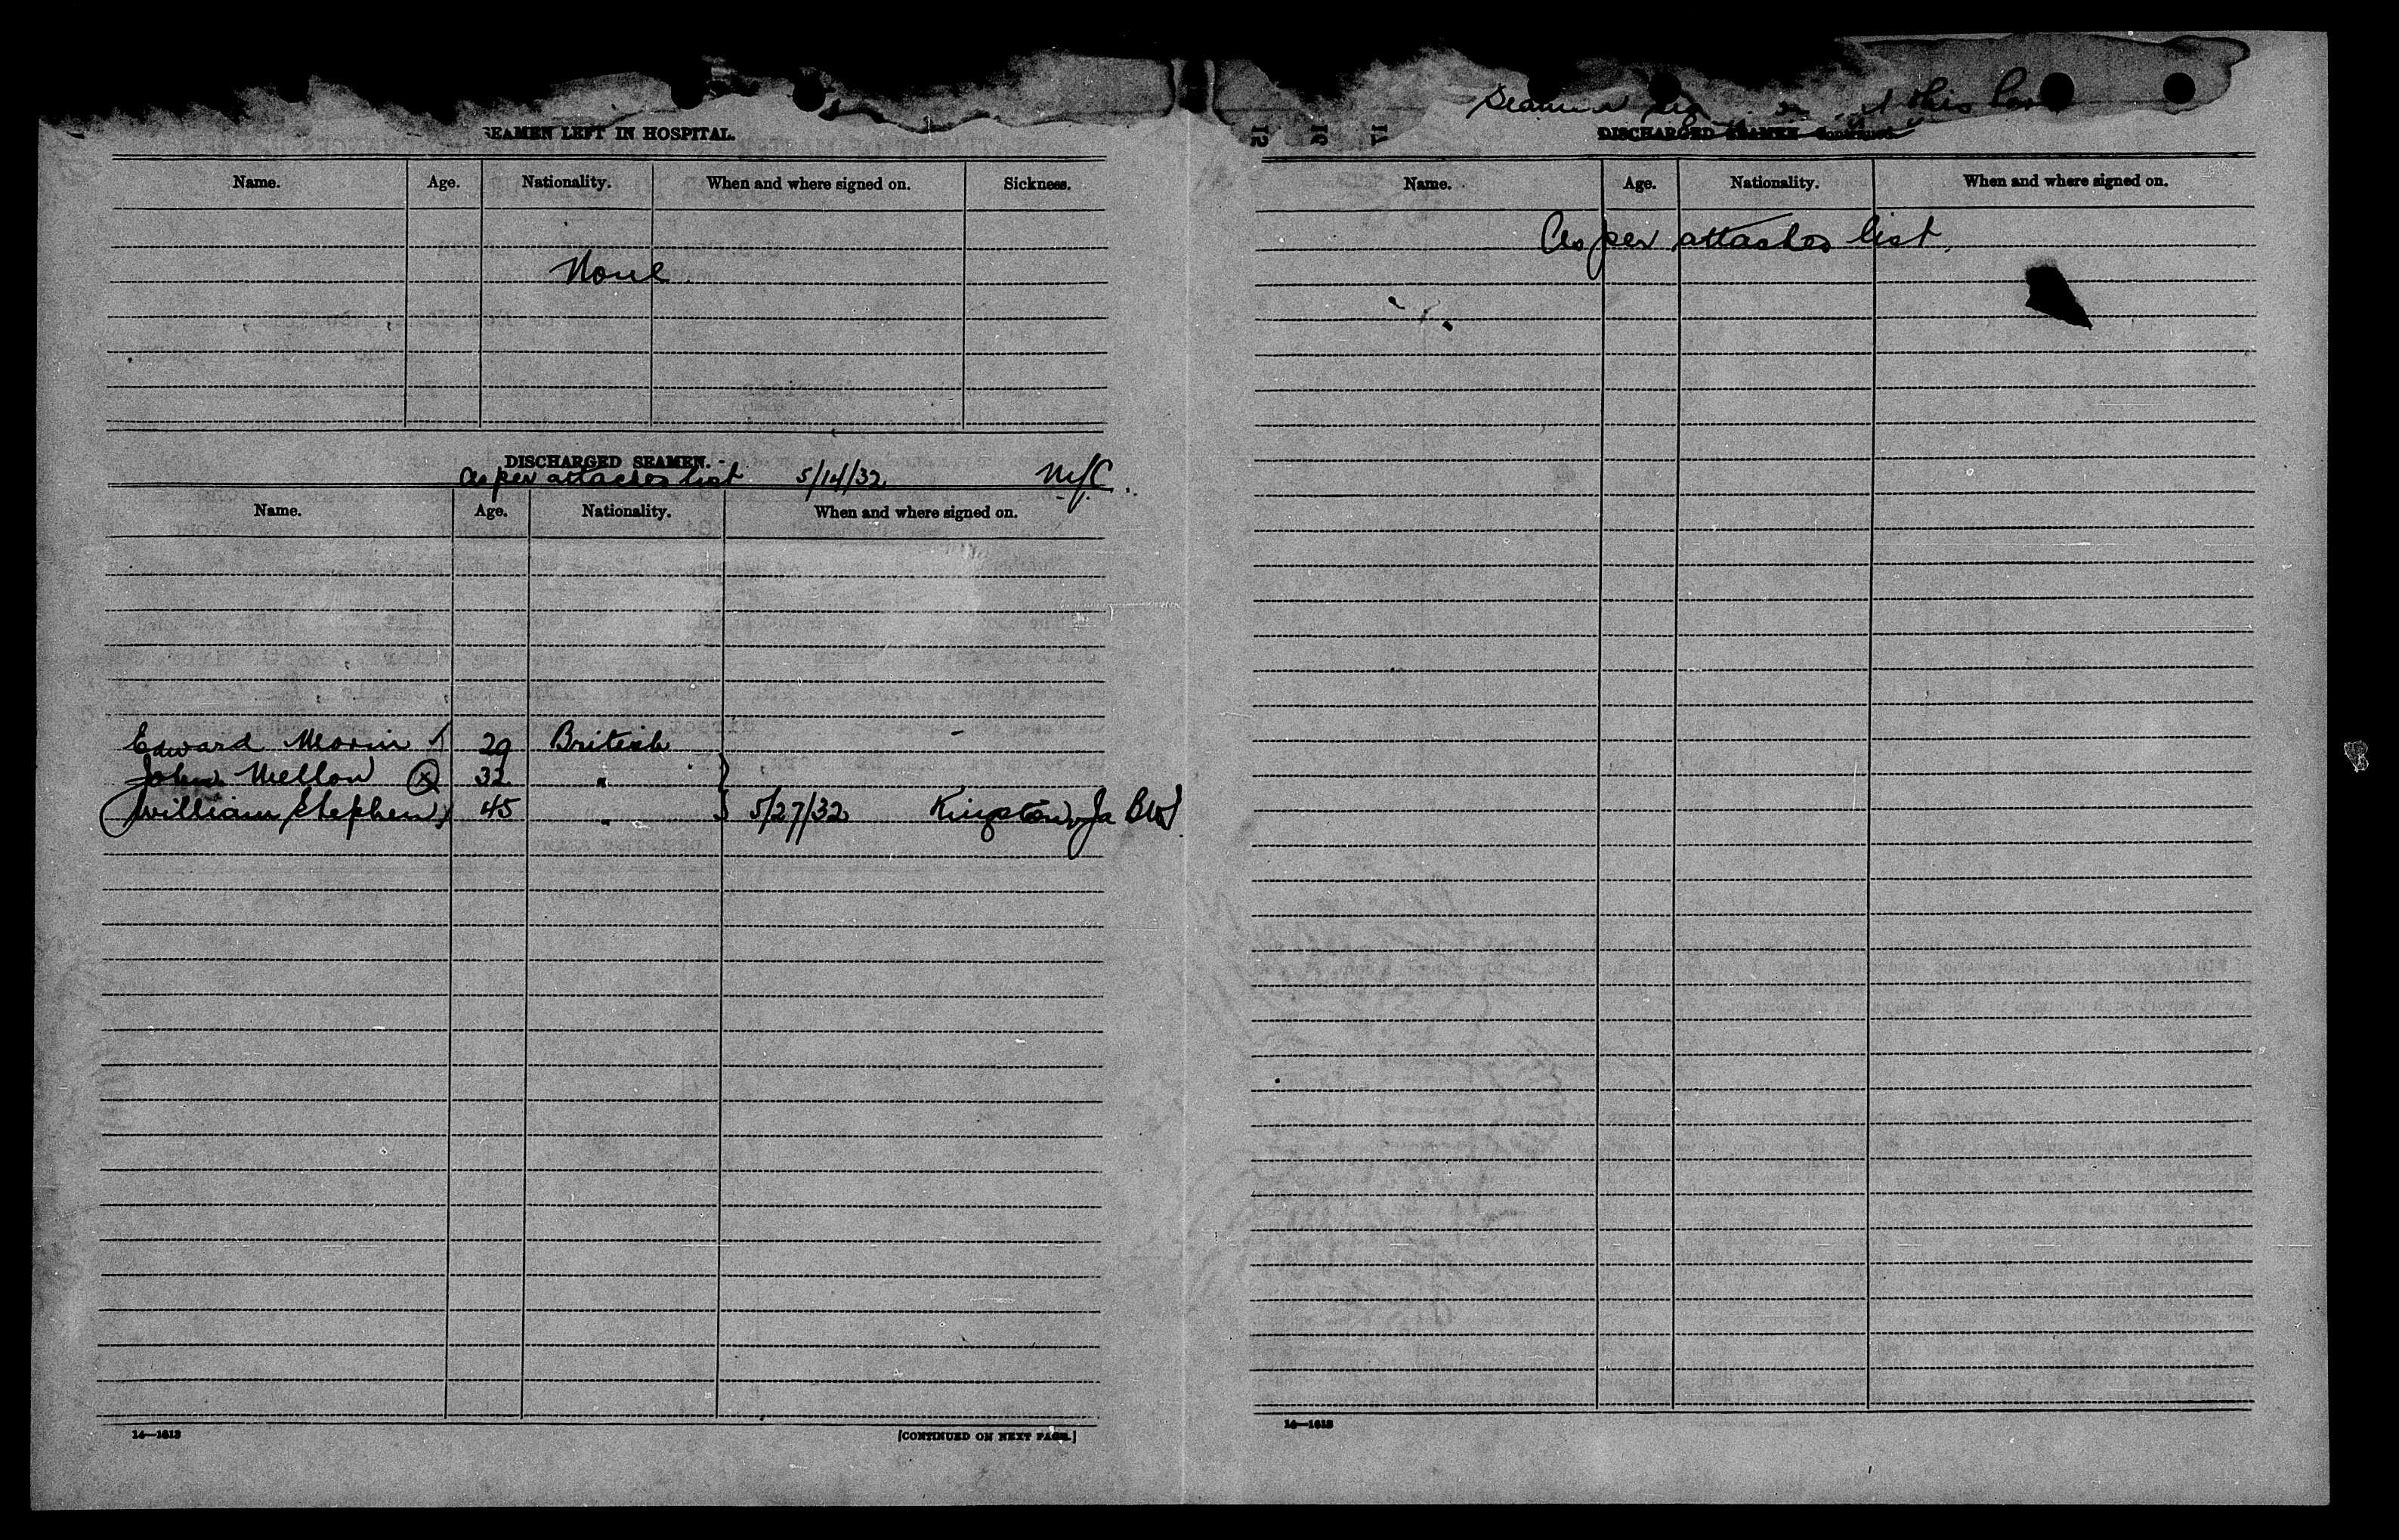 SEAMEN LEFT IN HOSPITAL.
Name. Age. Nationality. When and where signed on. Sickness.
None.
DISCHARGED SEAMEN.
As per attached list 5/14/32
Name. Age. Nationality. When and where signed on.
Edward Morin 29 British
John Mellon 32 "
William Stephen 45 " 5/27/32 Kingston, Ja BWI
14—1613
[CONTINUED ON NEXT PAGE.]
this
DISCHARGED SEAMEN—Continued
Name. Age. Nationality. When and where signed on.
As per attached list.
14—1613